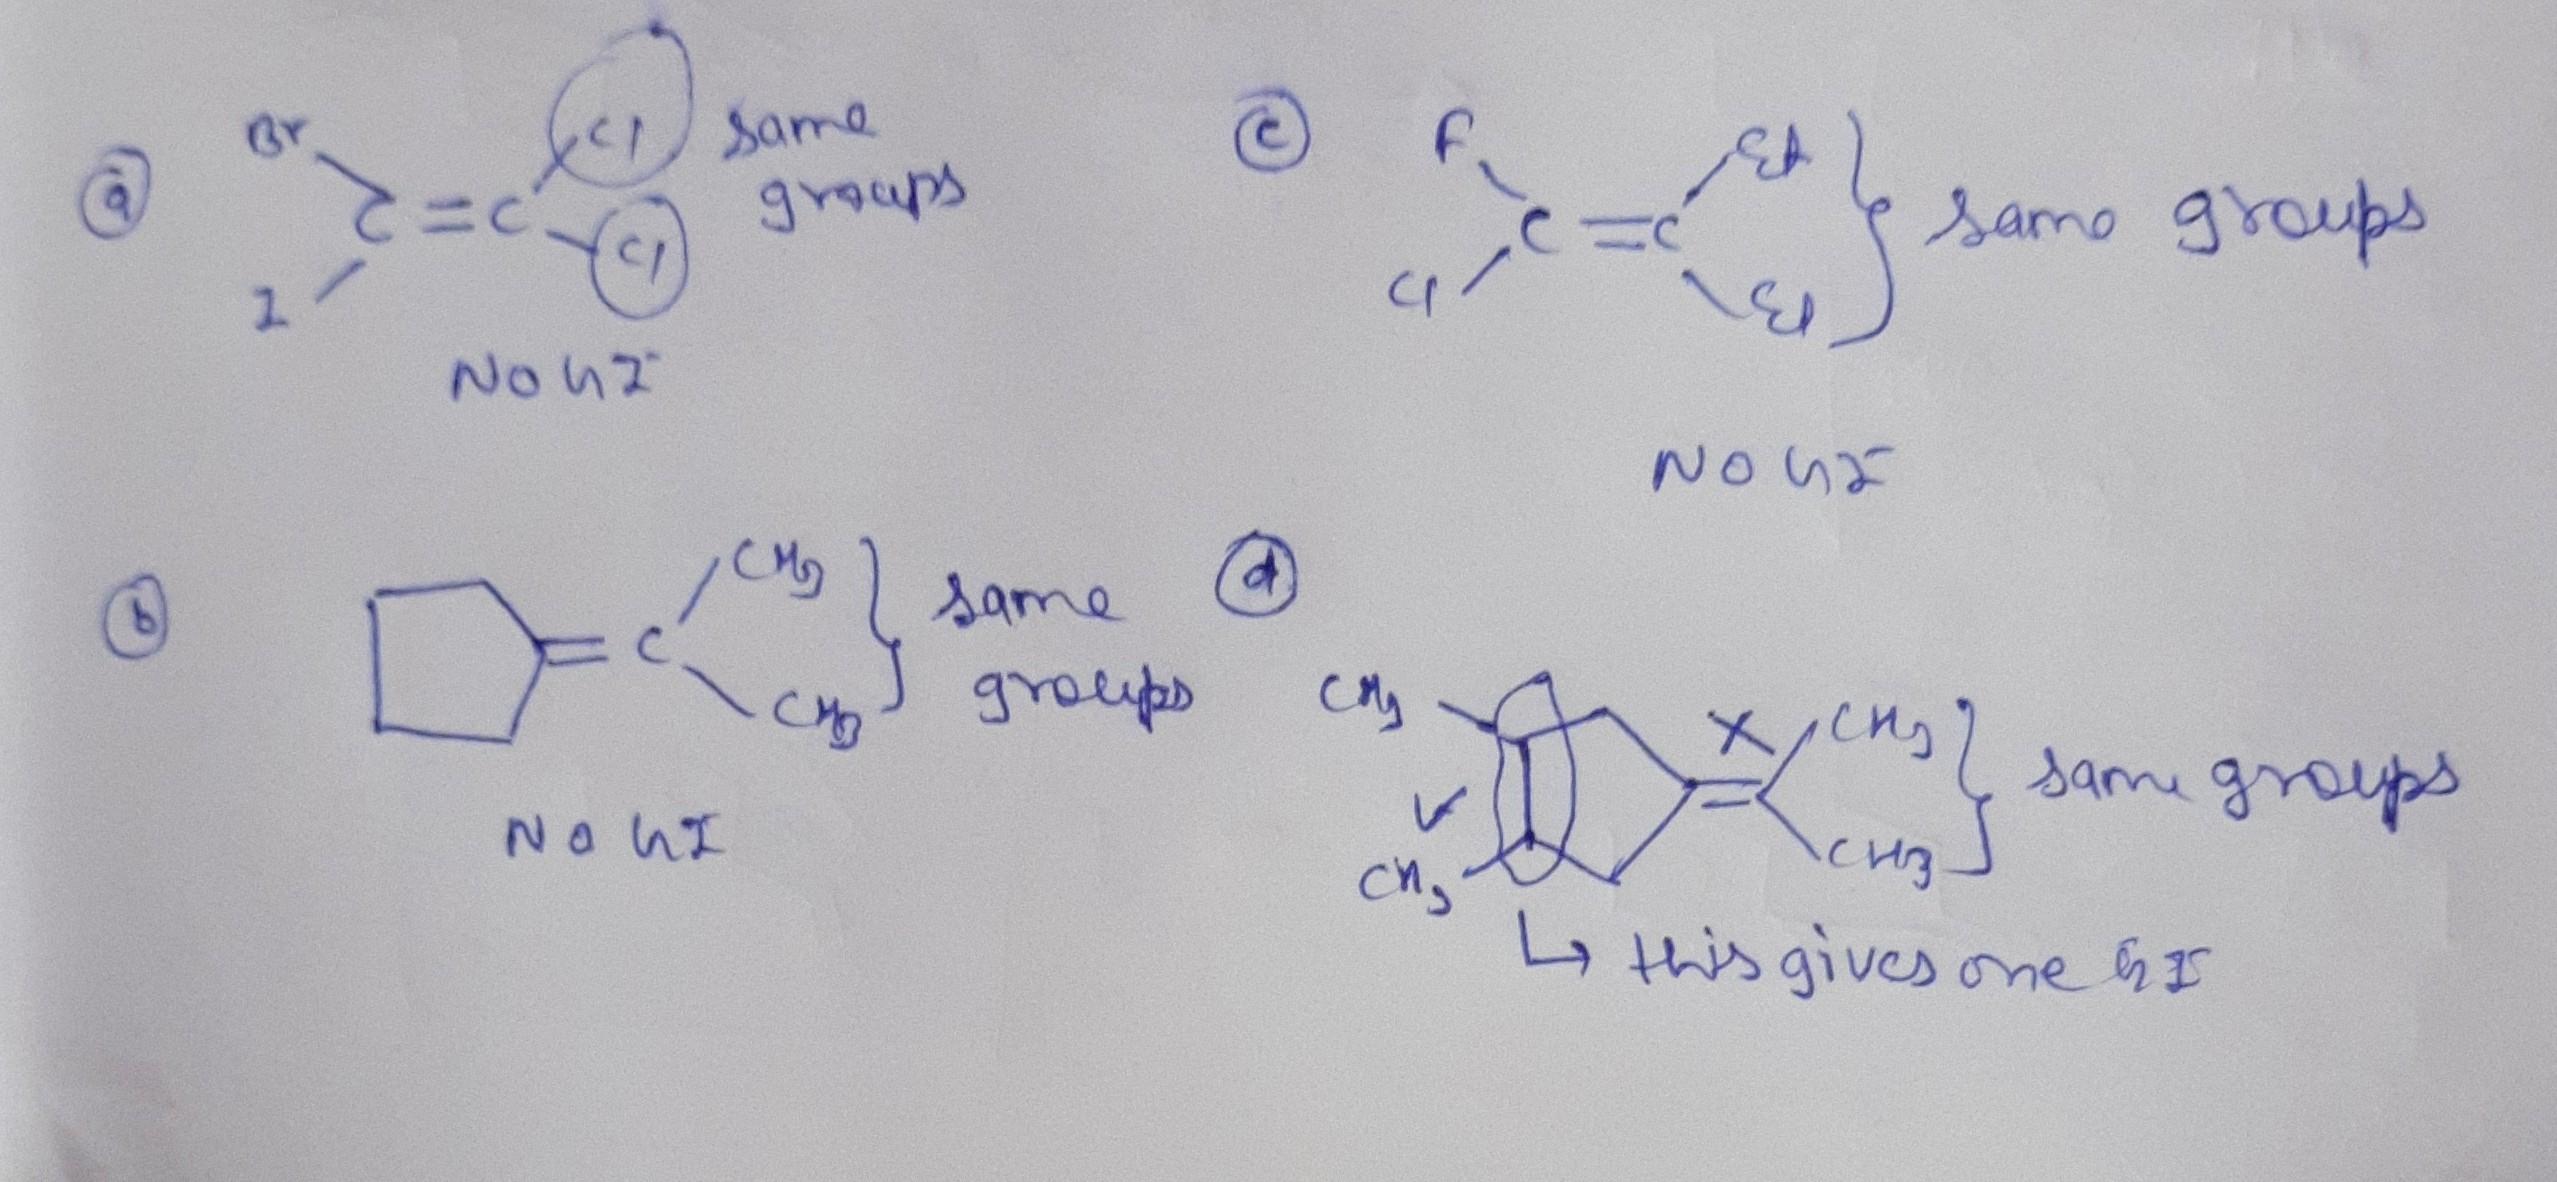 ⓐ Br
I
C = C
Cl
Cl
same
groups
NO GI
ⓒ F
Cl
C = C
Et
Et
same groups
NO GI
ⓑ = C
CH3
CH3
same
groups
NO GI
ⓓ
CH3
CH3
✓
X
CH3
CH3
same groups
↳ this gives one GI